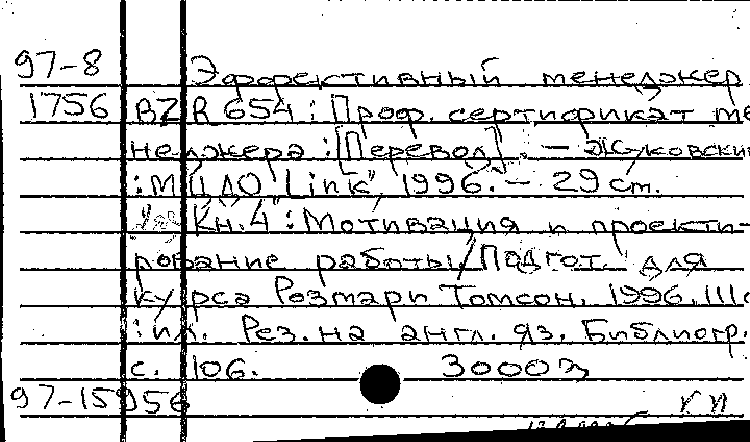 97-8 Эффективный менеджер
1756 BZR 654: Проф. сертификат ме-
неджера: [Перевод]. – Жуковский
: МЦДО "Link", 1996. – 29 см.
Кн. 4: Мотивация и проекти-
рование работы / Подгот. для
курса Розмари Томсон. 1996. 111 с
: ил. Рез. на англ. яз. Библиогр.:
с. 106. 3000э
97-15956 КП